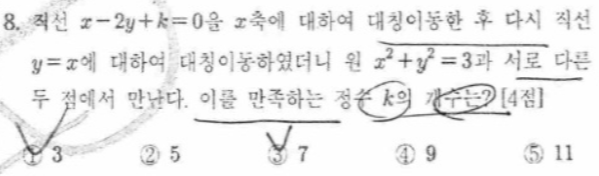 8. 직선 x-2y+k=0을 x축에 대하여 대칭이동한 후 다시 직선
y=x에 대하여 대칭이동하였더니 원 x²+y²=3과 서로 다른
두 점에서 만난다. 이를 만족하는 정수 k의 개수는? [4점]
① 3 ② 5 ③ 7 ④ 9 ⑤ 11